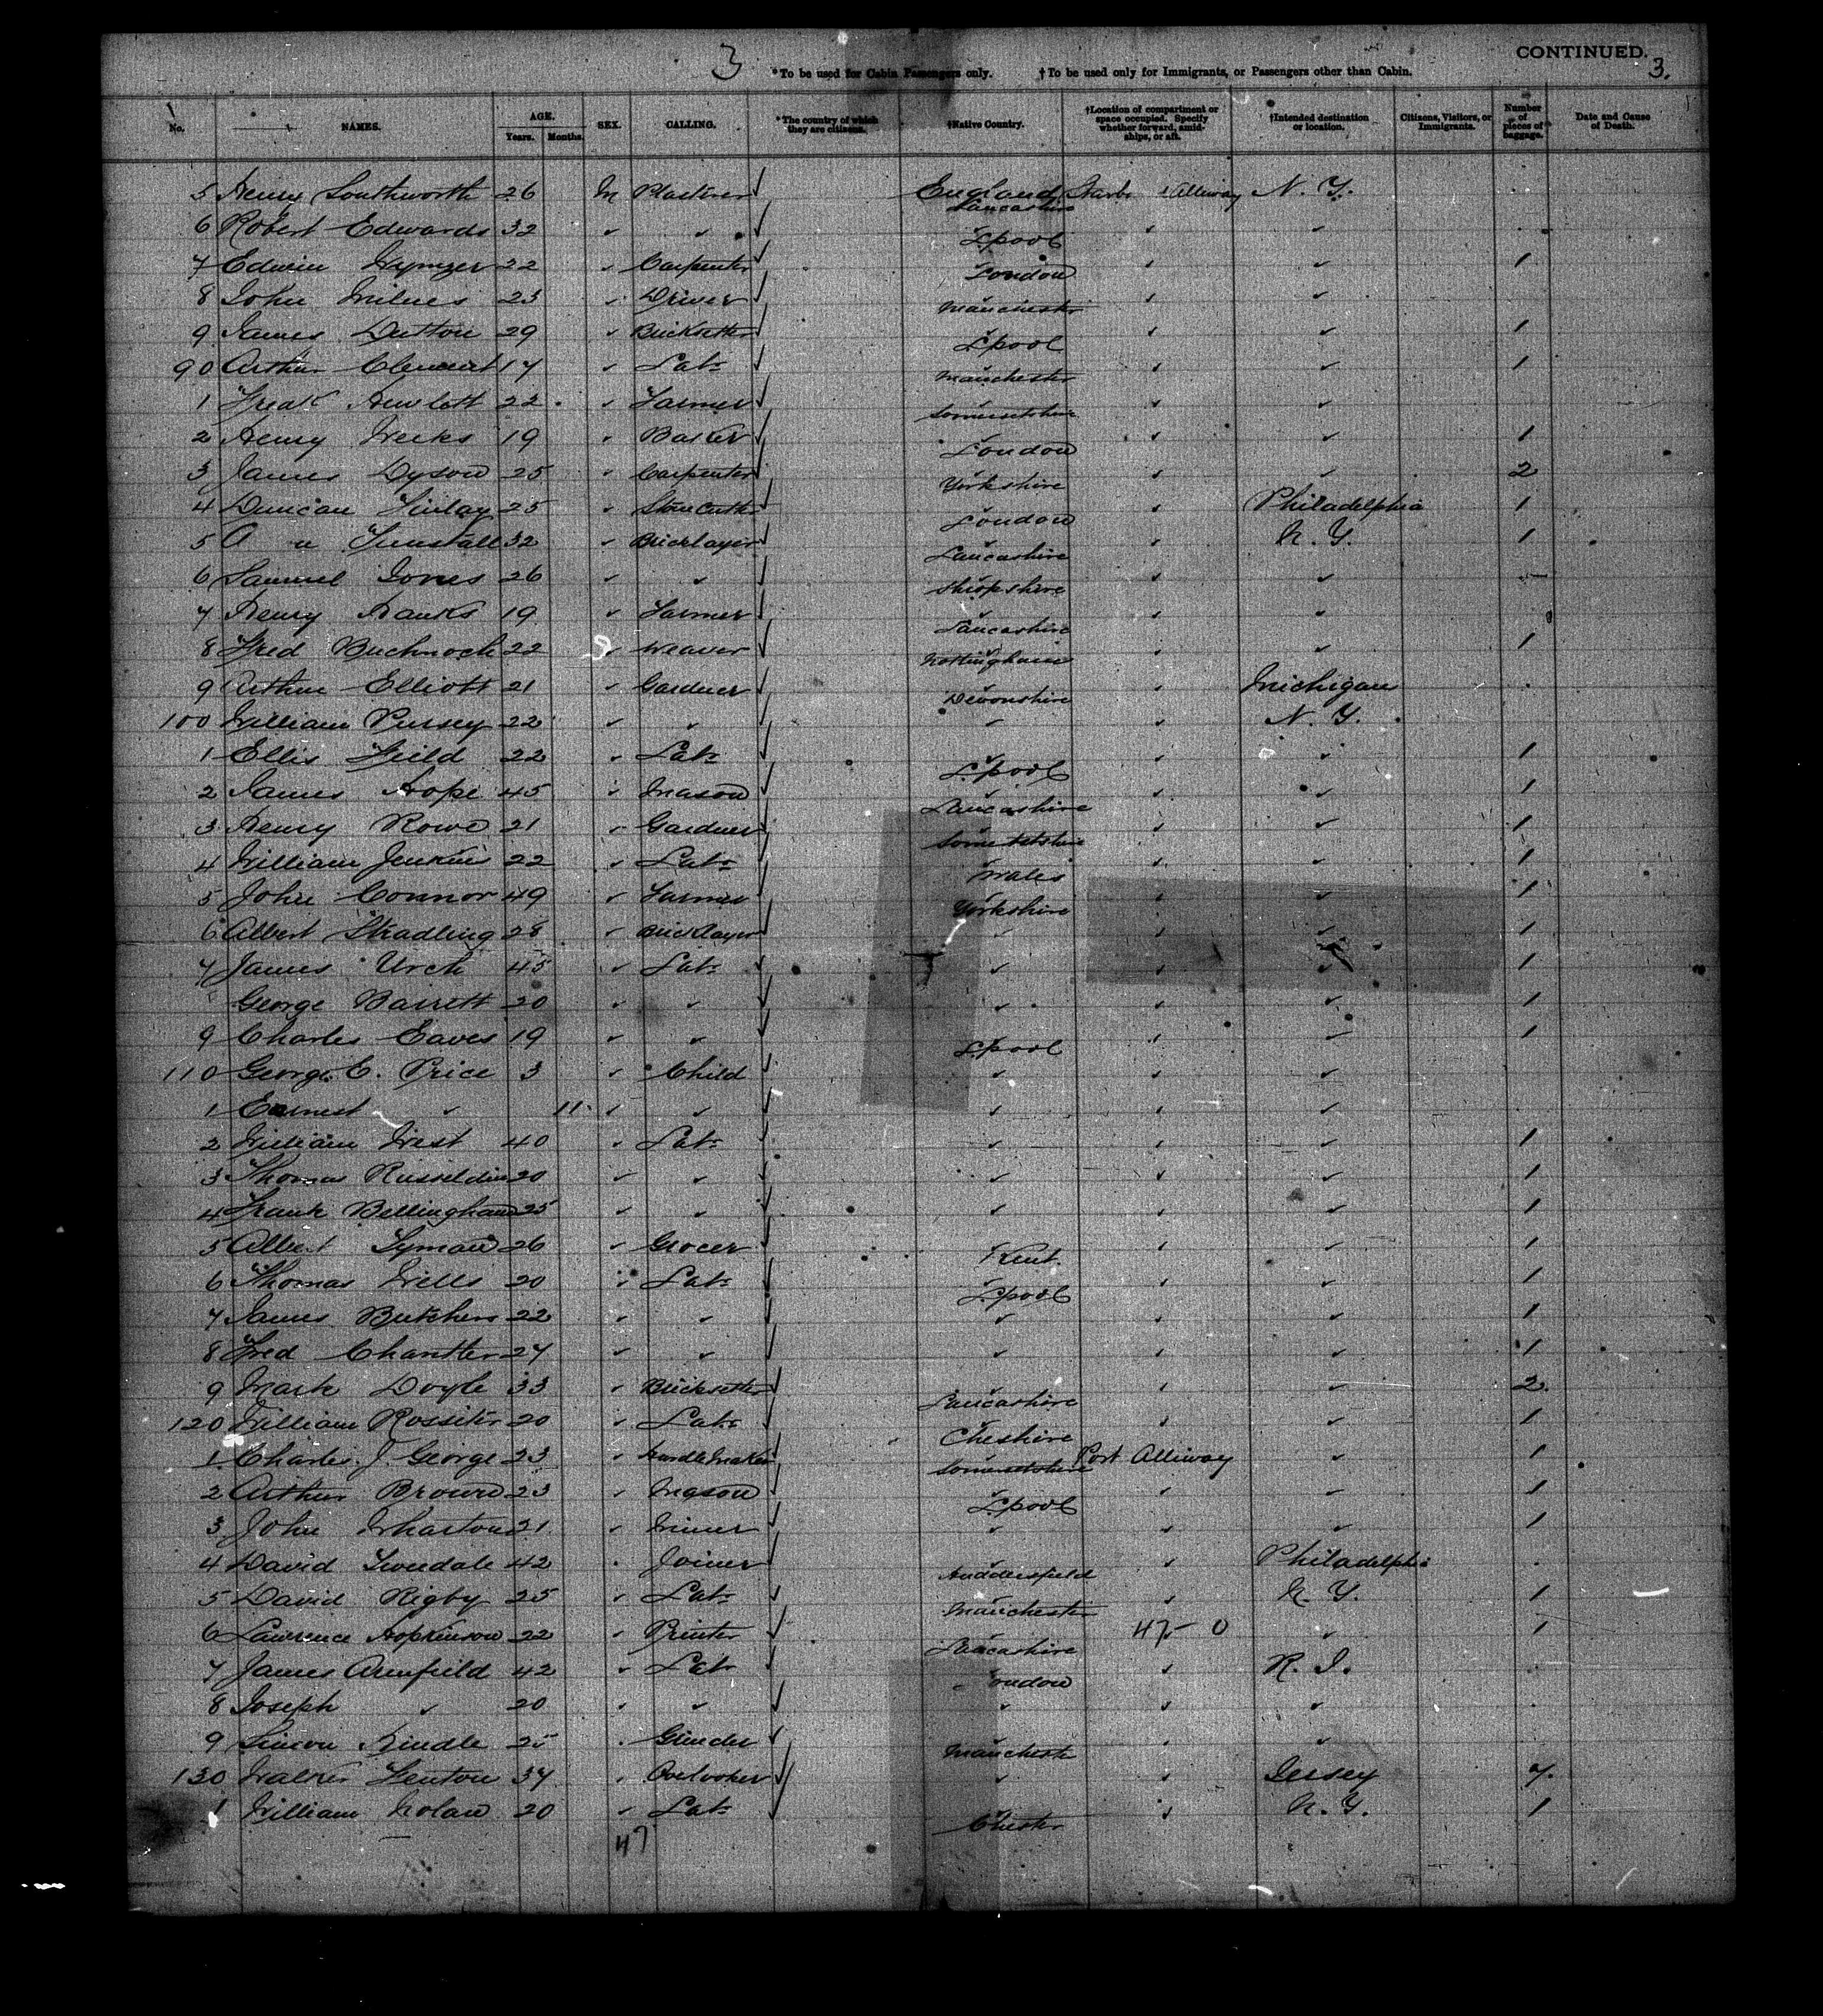 3 *To be used for Cabin Passengers only. †To be used only for Immigrants, or Passengers other than Cabin. CONTINUED. 3.
No. NAMES. AGE. Years. Months. SEX. CALLING. *The country of which they are citizens. †Native Country. †Location of compartment or space occupied. Specify whether forward, amidships, or aft. †Intended destination or location. Citizens, Visitors, or Immigrants. Number of pieces of baggage. Date and Cause of Death.
5 Henry Southworth 26 M Plasterer ✓ England Lancashire Starbd Alliway N. Y.
6 Robert Edwards 32 ✓ ✓ ✓ L'pool ✓ ✓
7 Edwin 22 ✓ Carpenter ✓ London ✓ ✓ 1
8 John Milnes 23 ✓ Driver ✓ Manchester ✓ ✓
9 James Dutton 29 ✓ Bricksetter ✓ L'pool ✓ ✓ 1
90 Arthur Clement 17 ✓ Labr ✓ Manchester ✓ ✓ 1
1 Fredk Hewlett 22 ✓ Farmer ✓ Somersetshire ✓ ✓
2 Henry Weeks 19 ✓ Baker ✓ London ✓ ✓ 1
3 James Dyson 25 ✓ Carpenter ✓ Yorkshire ✓ ✓ 2
4 Duncan Finlay 25 ✓ Stone Cutter ✓ London ✓ Philadelphia 1
5 A Tunstall 32 ✓ Bricklayer ✓ Lancashire ✓ N. Y. 1
6 Samuel Jones 26 ✓ ✓ ✓ Shropshire ✓ ✓
7 Henry Hanks 19 ✓ Farmer ✓ Lancashire ✓ ✓
8 Fred Buchnock 22 ✓ Weaver ✓ Nottingham ✓ ✓ 1
9 Arthur Elliott 21 ✓ Gardner ✓ Devonshire ✓ Michigan
100 William Pursey 22 ✓ ✓ ✓ ✓ ✓ N. Y.
1 Ellis Field 22 ✓ Labr ✓ L'pool ✓ ✓ 1
2 James Hope 45 ✓ Mason ✓ Lancashire ✓ ✓ 1
3 Henry Rowe 21 ✓ Gardner ✓ Somersetshire ✓ ✓ 1
4 William Jenkins 22 ✓ Labr ✓ Wales ✓ ✓ 1
5 John Connor 49 ✓ Farmer ✓ Yorkshire ✓ ✓ 1
6 Albert Stradling 28 ✓ Bricklayer ✓ ✓ ✓ ✓ 1
7 James Urch 45 ✓ Labr ✓ ✓ ✓ ✓ 1
George Barrett 20 ✓ ✓ ✓ ✓ ✓ ✓ 1
9 Charles Eaves 19 ✓ ✓ ✓ L'pool ✓ ✓ 1
110 George E. Price 3 ✓ Child ✓ ✓ ✓ ✓
1 Earnest ✓ 11 ✓ ✓ ✓ ✓ ✓ ✓
2 William West 40 ✓ Labr ✓ ✓ ✓ ✓ 1
3 Thomas 20 ✓ ✓ ✓ ✓ ✓ ✓ 1
4 Frank Bellingham 25 ✓ ✓ ✓ ✓ ✓ ✓ 1
5 Albert Lyman 26 ✓ Grocer ✓ Kent. ✓ ✓ 1
6 Thomas Wells 20 ✓ Labr ✓ L'pool ✓ ✓ 1
7 James Butchers 22 ✓ ✓ ✓ ✓ ✓ ✓ 1
8 Fred Chantler 24 ✓ ✓ ✓ ✓ ✓ ✓ 1
9 Mark Doyle 33 ✓ Bricksetter ✓ Lancashire ✓ ✓ 2
120 William Rossiter 20 ✓ Labr ✓ Cheshire ✓ ✓ 1
1 Charles J. George 23 ✓ ✓ Somersetshire Port Alliway ✓ 1
2 Arthur Brown 23 ✓ Mason ✓ L'pool ✓ ✓ 1
3 John Wharton 21 ✓ Miner ✓ ✓ ✓ ✓ 1
4 David 42 Joiner ✓ Huddersfield ✓ Philadelphia
5 David Rigby 25 ✓ Labr ✓ Manchester ✓ N. Y. 1
6 Lawrence Hopkinson 22 ✓ Printer ✓ Lancashire 47-0 ✓ 1
7 James Armfield 42 ✓ Labr ✓ London ✓ R. I.
8 Joseph ✓ 20 ✓ ✓ ✓ ✓ ✓ ✓
9 Simeon Kindle 25 Grinder ✓ Manchester ✓ ✓
130 Walter Fenton 34 Overlooker ✓ ✓ ✓ Jersey 7
1 William Nolan 20 ✓ Labr ✓ Chester ✓ N. Y. 1
47